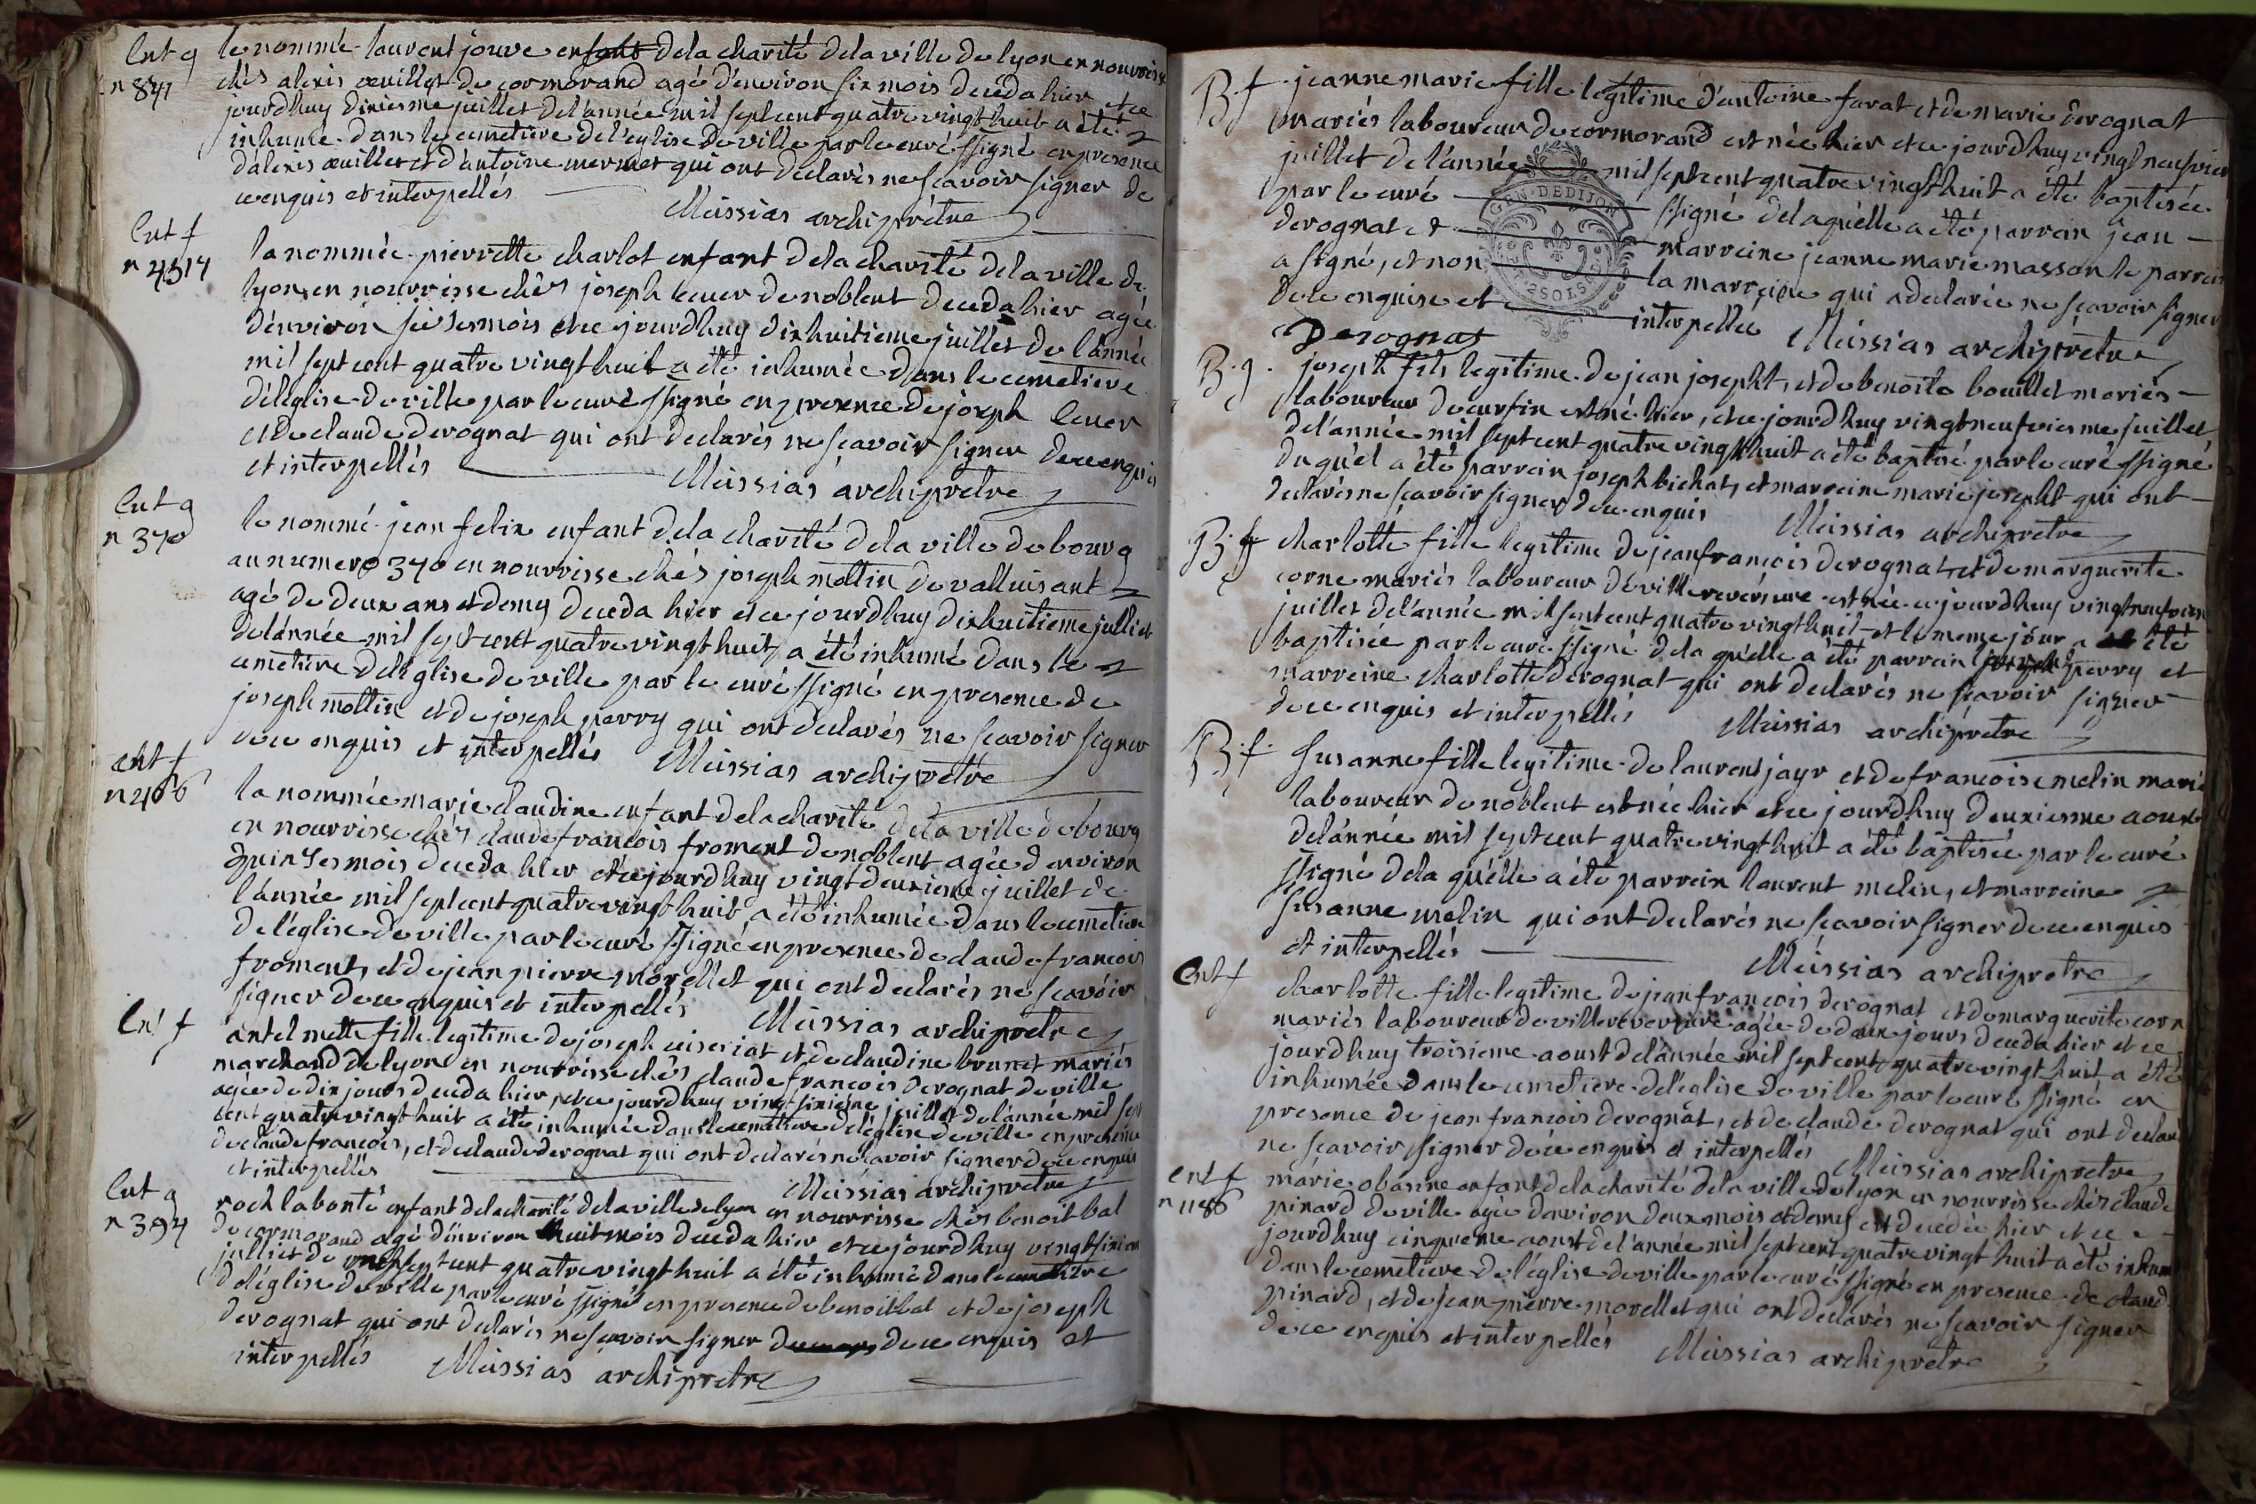 Ent g
n 841
le nommé laurent jouve enfant de la charité de la ville de lyon en nourrisse
chés alexis œuillet de cormorand agé denviron six mois deceda hier et ce
jourdhuy dixiesme juillet de l'année mil sept cent quatre vingt huit a été
inhumé dans le cemetiere de l'eglise de ville par le curé ssigné en presence
d'alexis œuillet et d'antoine mermet qui ont declarés ne scavoir signer de
ce enquis et interpellés
Meissias archiprètre
Ent f
n 4514
la nommée pierrette charlot enfant de la charité de la ville de
lyon en nourrisse chés joseph leuer de noblent deceda hier agée
d'environ seizes mois et ce jourdhuy dixhuitieme juillet de l'année
mil sept cent quatre vingt huit a été inhumée dans le cemetiere
de l'église de ville par le curé ssigné en presence de joseph leuer
et de claude derognat qui ont declarés ne scavoir signer de ce enquis
et interpellés
Meissias archiprètre
Ent g
n 370
le nommé jean felix enfant de la charité de la ville de bourg
au numero 370 en nourrisse chés joseph mottin de valluisant
agé de deux ans et demy deceda hier et ce jourdhuy dixhuitieme juillet
de l'année mil sept cent quatre vingt huit a été inhumé dans le
cemetiere de l'eglise de ville par le curé ssigné en presence de
joseph mottin et de joseph perry qui ont declarés ne scavoir signer
de ce enquis et interpellés
Meissias archiprètre
ent f
n 406
la nommée marie claudine enfant de la charité de la ville de bourg
en nourrisse chés claude francois froment de noblent agée d'environ
quinzes mois deceda hier et ce jourdhuy vingt deuxieme juillet de
l'année mil sept cent quatre vingt huit a été inhumée dans le cemetiere
de l'église de ville par le curé ssigné en presence de claude francois
froment, et de jean pierre morellet qui ont declarés ne scavoir
signer de ce enquis et interpellés
Meissias archiprètre
Ent f
antelmette fille legitime de joseph et de claudine brunet mariés
marchand de lyon en nourrisse chés claude francois derognat de ville
agée de dix jours deceda hier et ce jourdhuy vingt sixième juillet de l'année mil sept
cent quatre vingt huit a été inhumée dans le cemetiere de l'église de ville en presence
de claude francois, et de claude derognat qui ont declarés ne scavoir signer de ce enquis
et interpellés
Meissias archiprètre
Ent g
n 394
roch labonté enfant de la charité de la ville de lyon en nourrisse chés benoit bal
de cormorand agé d'environ huit mois deceda hier et ce jourdhuy vingt sixieme
juillet de mil sept cent quatre vingt huit a été inhumé dans le cemetiere
de l'église de ville par le curé ssigné en presence de benoit bal et de joseph
derognat qui ont declarés ne scavoir signer de ce enquis et
interpellés
Meissias archiprètre
B. f
jeanne marie fille legitime d'antoine farat et de marie derognat
mariés laboureur de cormorand est née hier et ce jourdhuy vingt neufvieme
juillet de l'année mil sept cent quatre vingt huit a été baptisée
par le curé ssigné de laquelle a été parrain jean
derognat et marreine jeanne marie masson le parrein
a signé, et non la marreine qui a declarée ne scavoir signer
de ce enquise et interpellée
GEN. DE DIJON
Derognat
Meissias archiprètre
B. g.
joseph fils legitime de jean josepht, et de benoite bouillet mariés
laboureur de curfin est né hier, et ce jourdhuy vingt neufviesme juillet
de l'année mil sept cent quatre vingt huit a été baptisé par le curé ssigné
du quel a été parrain joseph bichat, et marreine marie josepht qui ont
declarés ne scavoir signer de ce enquis
Meissias archiprètre
B. f
charlotte fille legitime de jean françois derognat, et de marguerite
corne mariés laboureur de villereversure est née ce jourdhuy vingt neufvieme
juillet de l'année mil sept cent quatre vingt huit et le meme jour a été
baptisée par le curé ssigné de la quelle a été parrain joseph perry et
marreine charlotte derognat qui ont declarés ne scavoir signer
de ce enquis et interpellés
Meissias archiprètre
B. f.
Susanne fille legitime de laurent jayr et de francoise melin mariés
laboureur de noblent est née hier et ce jourdhuy deuxiesme aoust
de l'année mil sept cent quatre vingt huit a été baptisée par le curé
ssigné de la quelle a été parrein laurent melin, et marreine
Susanne melin qui ont declarés ne scavoir signer de ce enquis
et interpellés
Meissias archiprètre
Ent f
charlotte fille legitime de jean francois derognat et de marguerite corne
mariés laboureur de villereversure agée de deux jours deceda hier et ce
jourdhuy troisieme aoust de l'année mil sept cent quatre vingt huit a été
inhumée dans le cemetiere de l'église de ville par le curé ssigné en
presence de jean francois derognat, et de claude derognat qui ont declarés
ne scavoir signer de ce enquis et interpellés
Meissias archiprètre
ent f
n 1186
marie obasine enfant de la charité de la ville de lyon en nourrisse chés claude
pinard de ville agée d'environ deux mois et demy est decedée hier et ce
jourdhuy cinquieme aoust de l'année mil sept cent quatre vingt huit a été inhumée
dans le cemetiere de l'église de ville par le curé ssigné en presence de claude
pinard, et de jean pierre morellet qui ont declarés ne scavoir signer
de ce enquis et interpellés
Meissias archiprètre